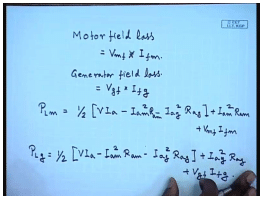 Motor field loss
= Vmf * Ifm.
Generator field loss.
= Vgf * Ifg
PLm = 1/2 [VIa - Iam² Ram Iag² Rag] + Iam² Ram
+ Vmf Ifm
PLg = 1/2 [VIa - Iam² Ram - Iag² Rag] + Iag² Rag
+ Vgf Ifg